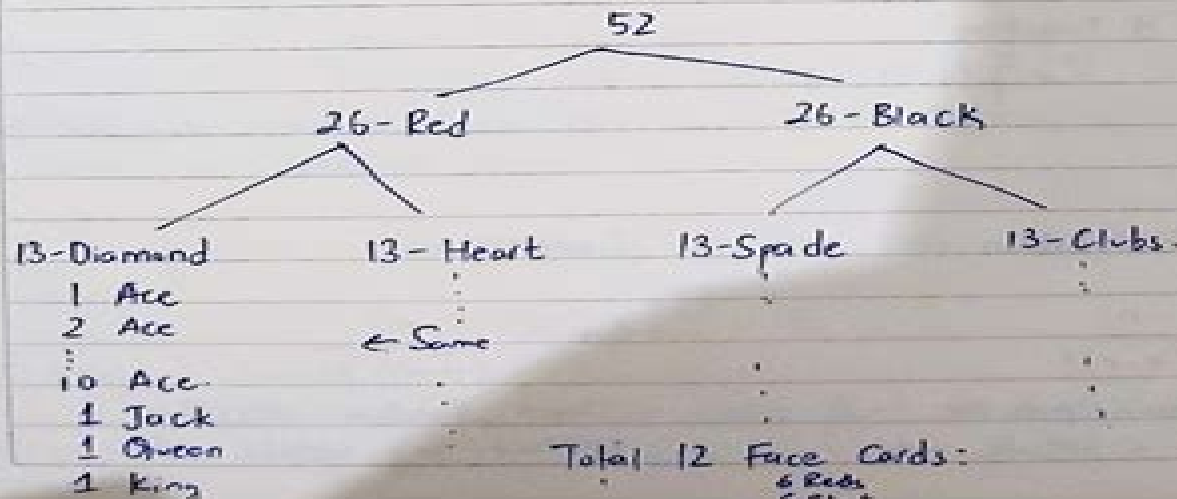 52
26-Red 26-Black
13-Diamond 13-Heart 13-Spade 13-Clubs
1 Ace
2 Ace
← Same
10 Ace
1 Jack
1 Queen
1 King
Total 12 Face Cards:
6 Reds